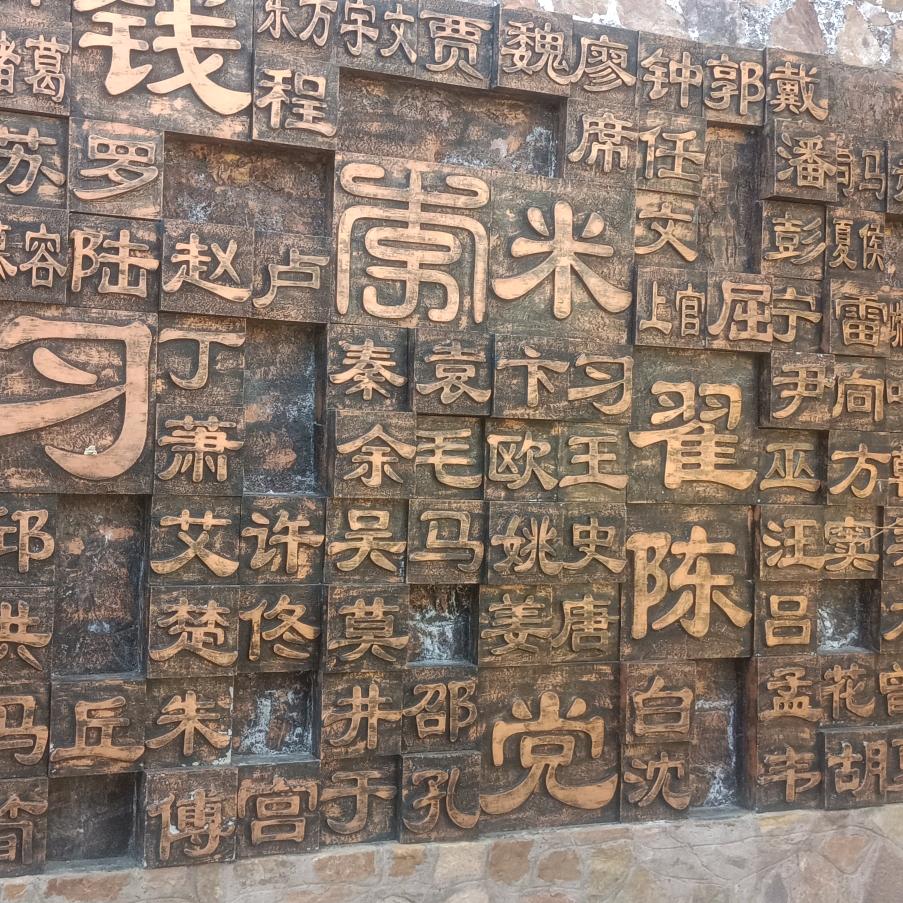 钱 东方 宇文 贾 魏 廖 钟 郭 戴
诸葛 程 席 任 潘 司马
苏 罗 米 文 彭 夏侯
慕容 陆 赵 卢 上官 屈 宁 雷
习 丁 秦 袁 卞 习 翟 尹 向
萧 余 毛 欧 王 巫 方
邱 艾 许 吴 马 姚 史 陈 汪 窦
洪 楚 佟 莫 姜 唐 吕
马 丘 朱 井 邵 党 白 孟 花 曾
傅 宫 于 孔 沈 韦 胡